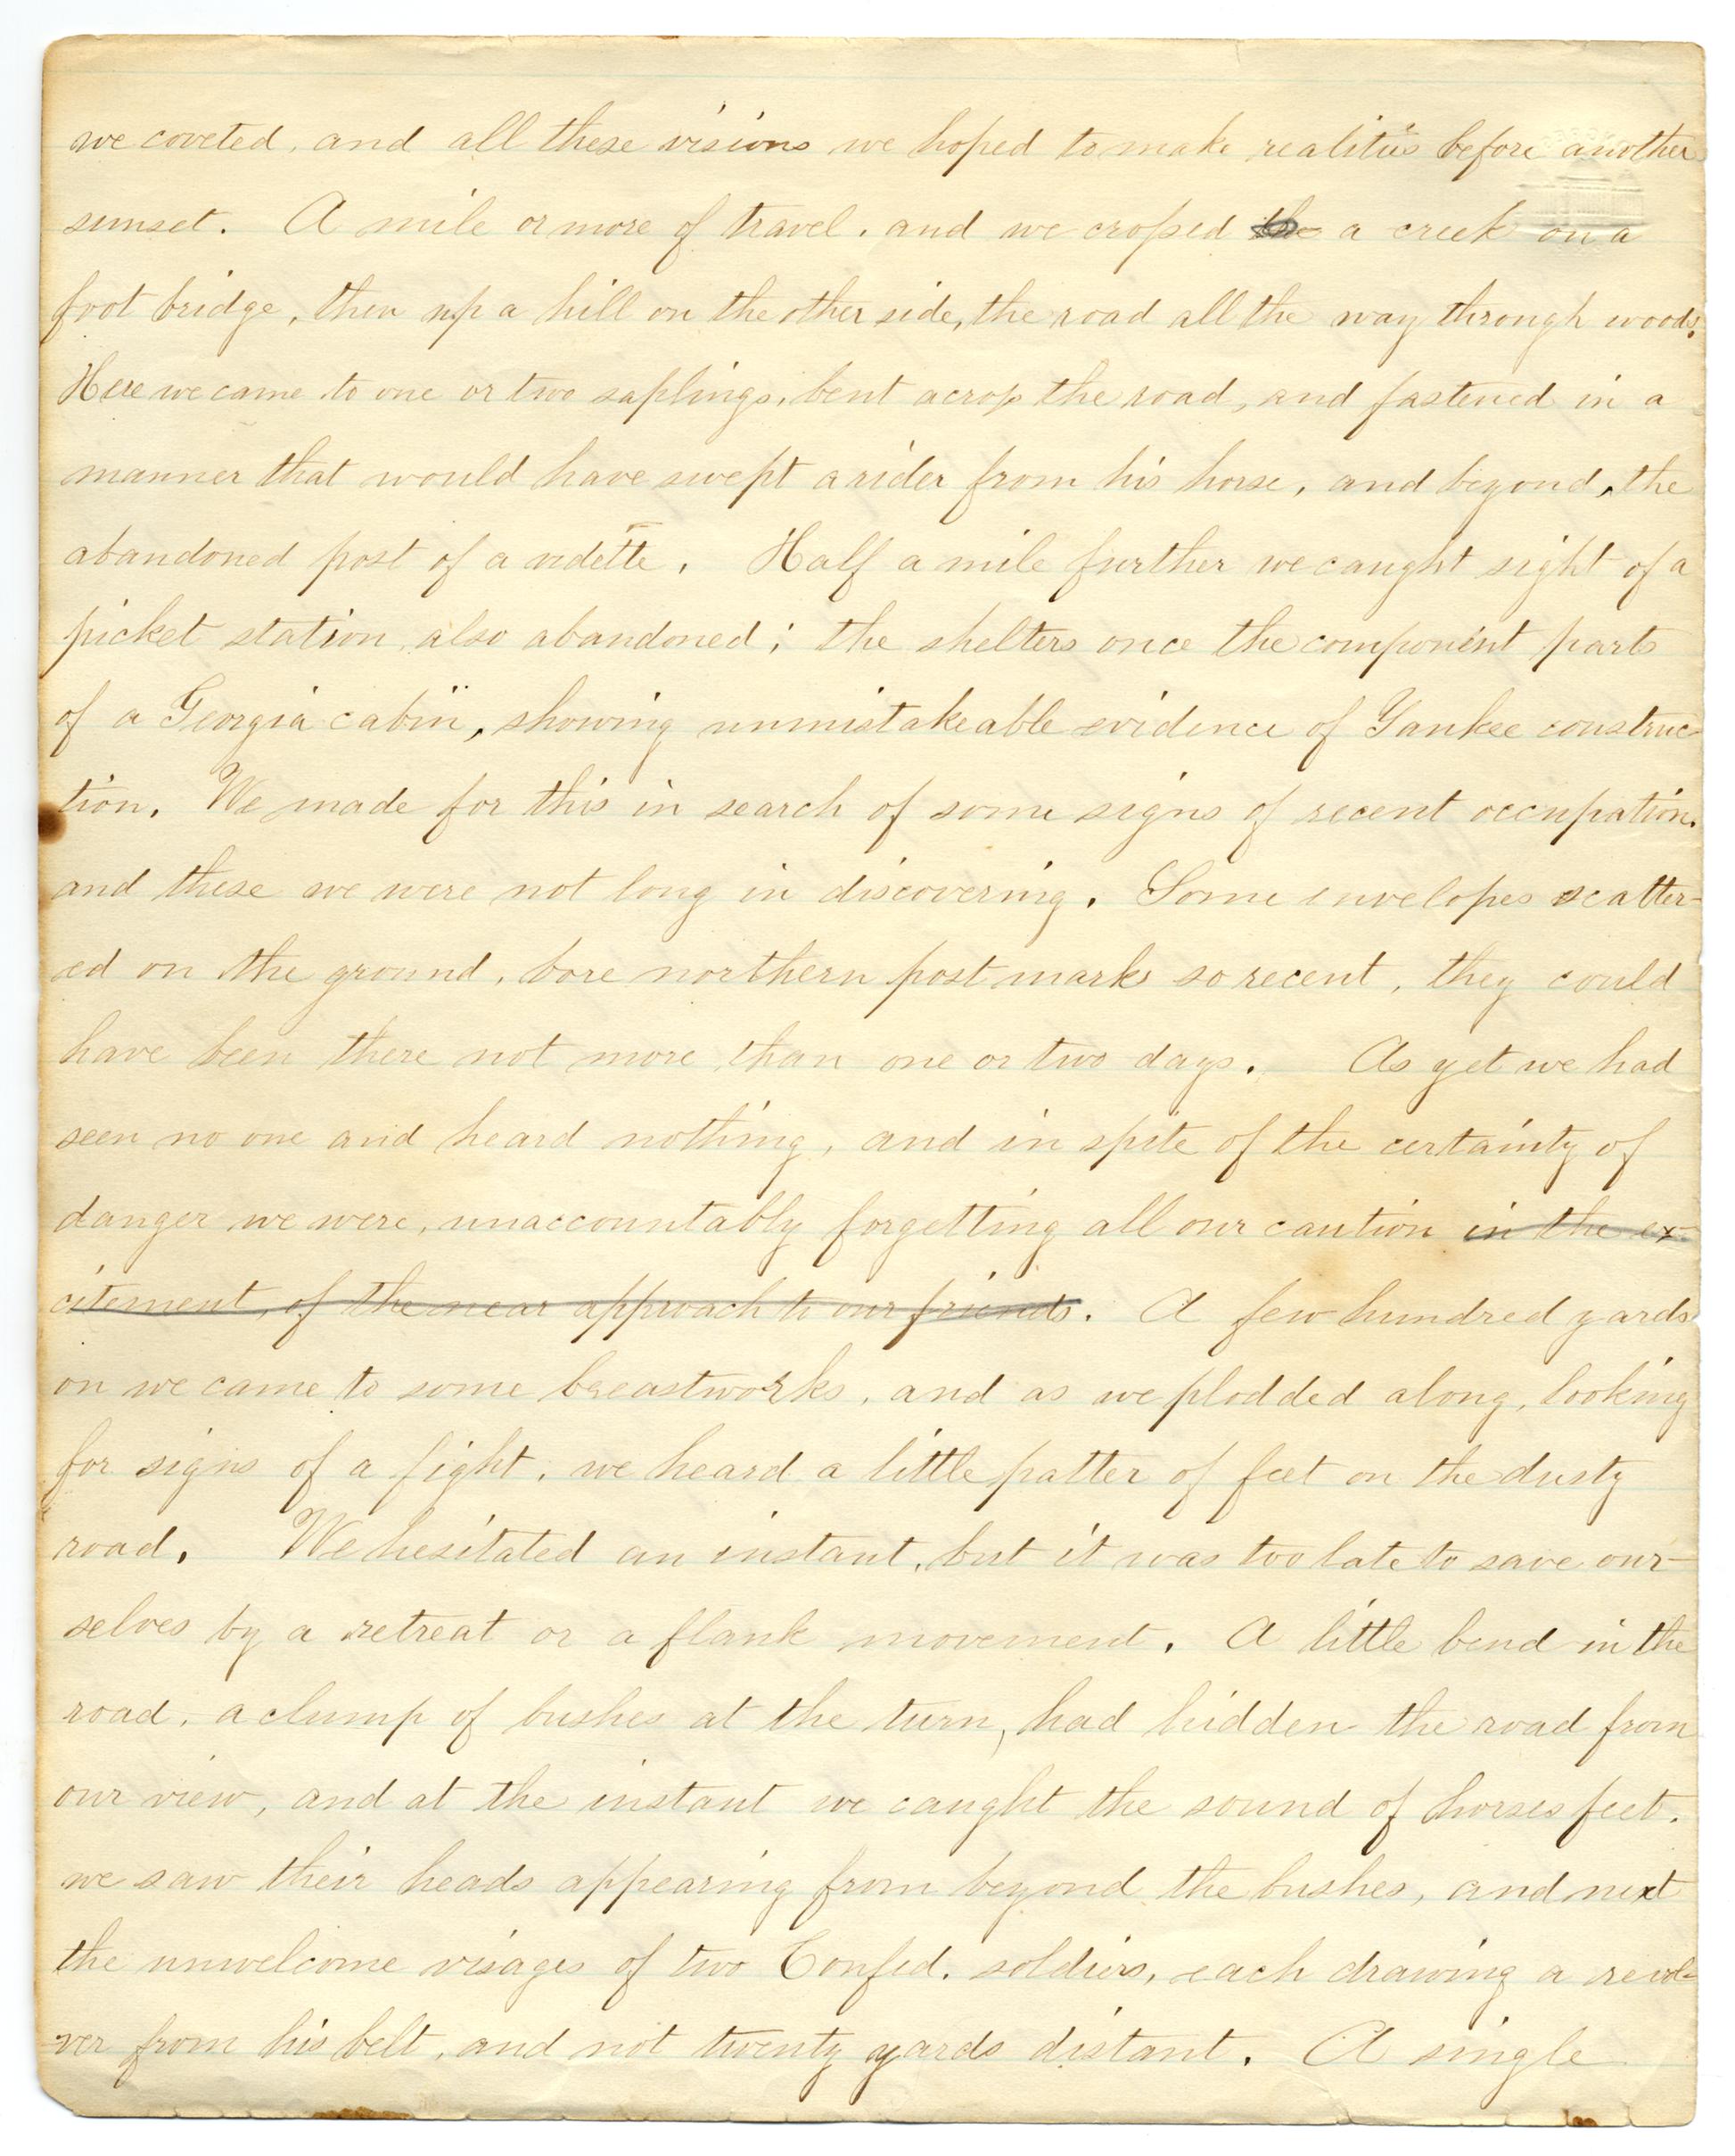 we coveted, and all these visions we hoped to make realities before another
sunset. A mile or more of travel, and we crossed the a creek on a
foot bridge, then up a hill on the other side, the road all the way through woods.
Here we came to one or two saplings, bent across the road, and fastened in a
manner that would have swept a rider from his horse, and beyond, the
abandoned post of a vidette. Half a mile further we caught sight of a
picket station, also abandoned; the shelters once the component parts
of a Georgia cabin, showing unmistakeable evidence of Yankee construc-
tion. We made for this in search of some signs of recent occupation,
and these we were not long in discovering. Some envelopes scatter-
ed on the ground, bore northern post marks so recent, they could
have been there not more than one or two days. As yet we had
seen no one and heard nothing, and in spite of the certainty of
danger we were, unaccountably forgetting all our caution in the ex-
citement, of the near approach to our friends. A few hundred yards
on we came to some breastworks, and as we plodded along, looking
for signs of a fight, we heard a little patter of feet on the dusty
road. We hesitated an instant, but it was too late to save our-
selves by a retreat or a flank movement. A little bend in the
road, a clump of bushes at the turn, had hidden the road from
our view, and at the instant we caught the sound of horses feet,
we saw their heads appearing from beyond the bushes, and next
the unwelcome visages of two Confed. soldiers, each drawing a revol-
ver from his belt, and not twenty yards distant. A single